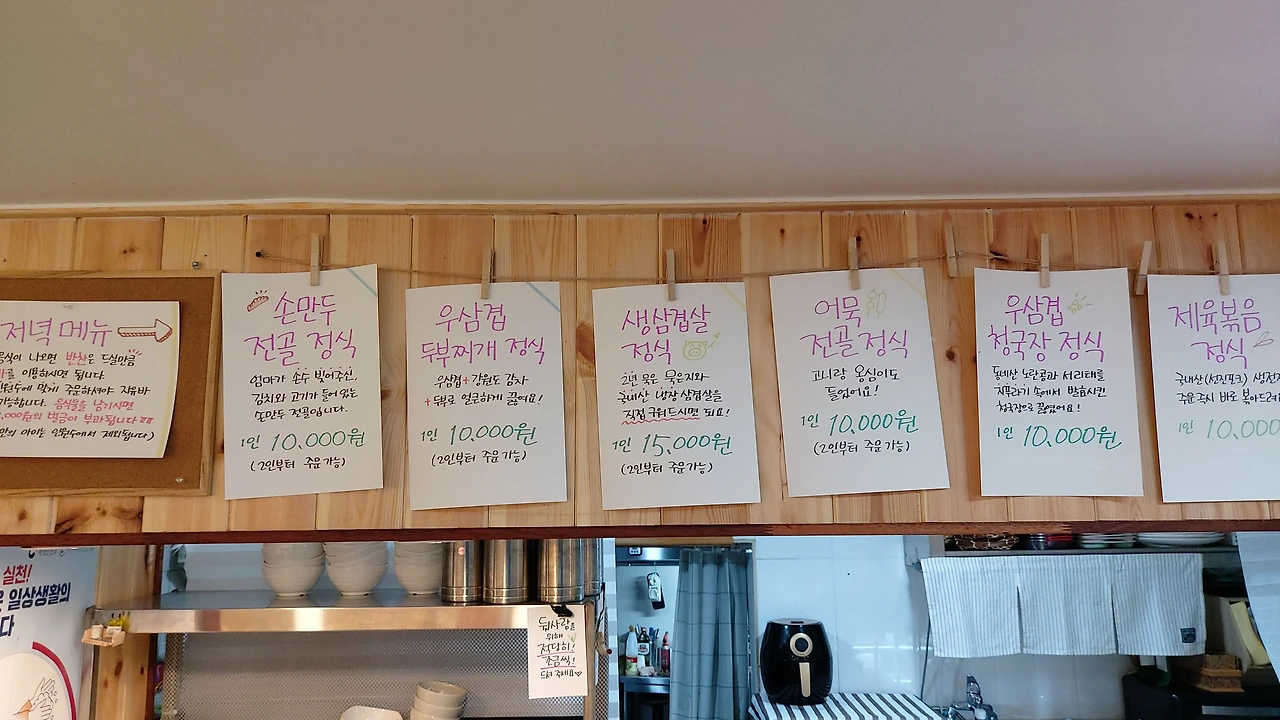 저녁 메뉴
음식이 나오면 반찬은 드실만큼
를 이용하시면 됩니다.
인원수에 맞게 주문하셔야 자유바
가능합니다. 음식물을 남기시면
,000원의 벌금이 부과됩니다
만의 아이는 인원수에서 제외됩니다)
손만두
전골 정식
엄마가 손수 빚어주신,
김치와 고기가 들어 있는
손만두 전골입니다.
1인 10,000원
(2인부터 주문가능)
우삼겹
두부찌개 정식
우삼겹+강원도 감자
+두부로 얼큰하게 끓여요!
1인 10,000원
(2인부터 주문가능)
생삼겹살
정식
2년 묵은 묵은지와
국내산 냉장 삼겹살을
직접 구워드시면 되요!
1인 15,000원
(2인부터 주문가능)
어묵
전골정식
고니랑 옹심이도
들었어요!
1인 10,000원
(2인부터 주문가능)
우삼겹
청국장 정식
동네산 노란콩과 서리태를
지푸라기 속에서 발효시킨
청국장으로 끓였어요!
1인 10,000원
제육볶음
정식
국내산(선진포크) 생전지
주문 즉시 바로 볶아드려
1인 10,000
실천!
일상생활의
다
뒷사람을
위해
적당히!
조금씩!
드려 주세요